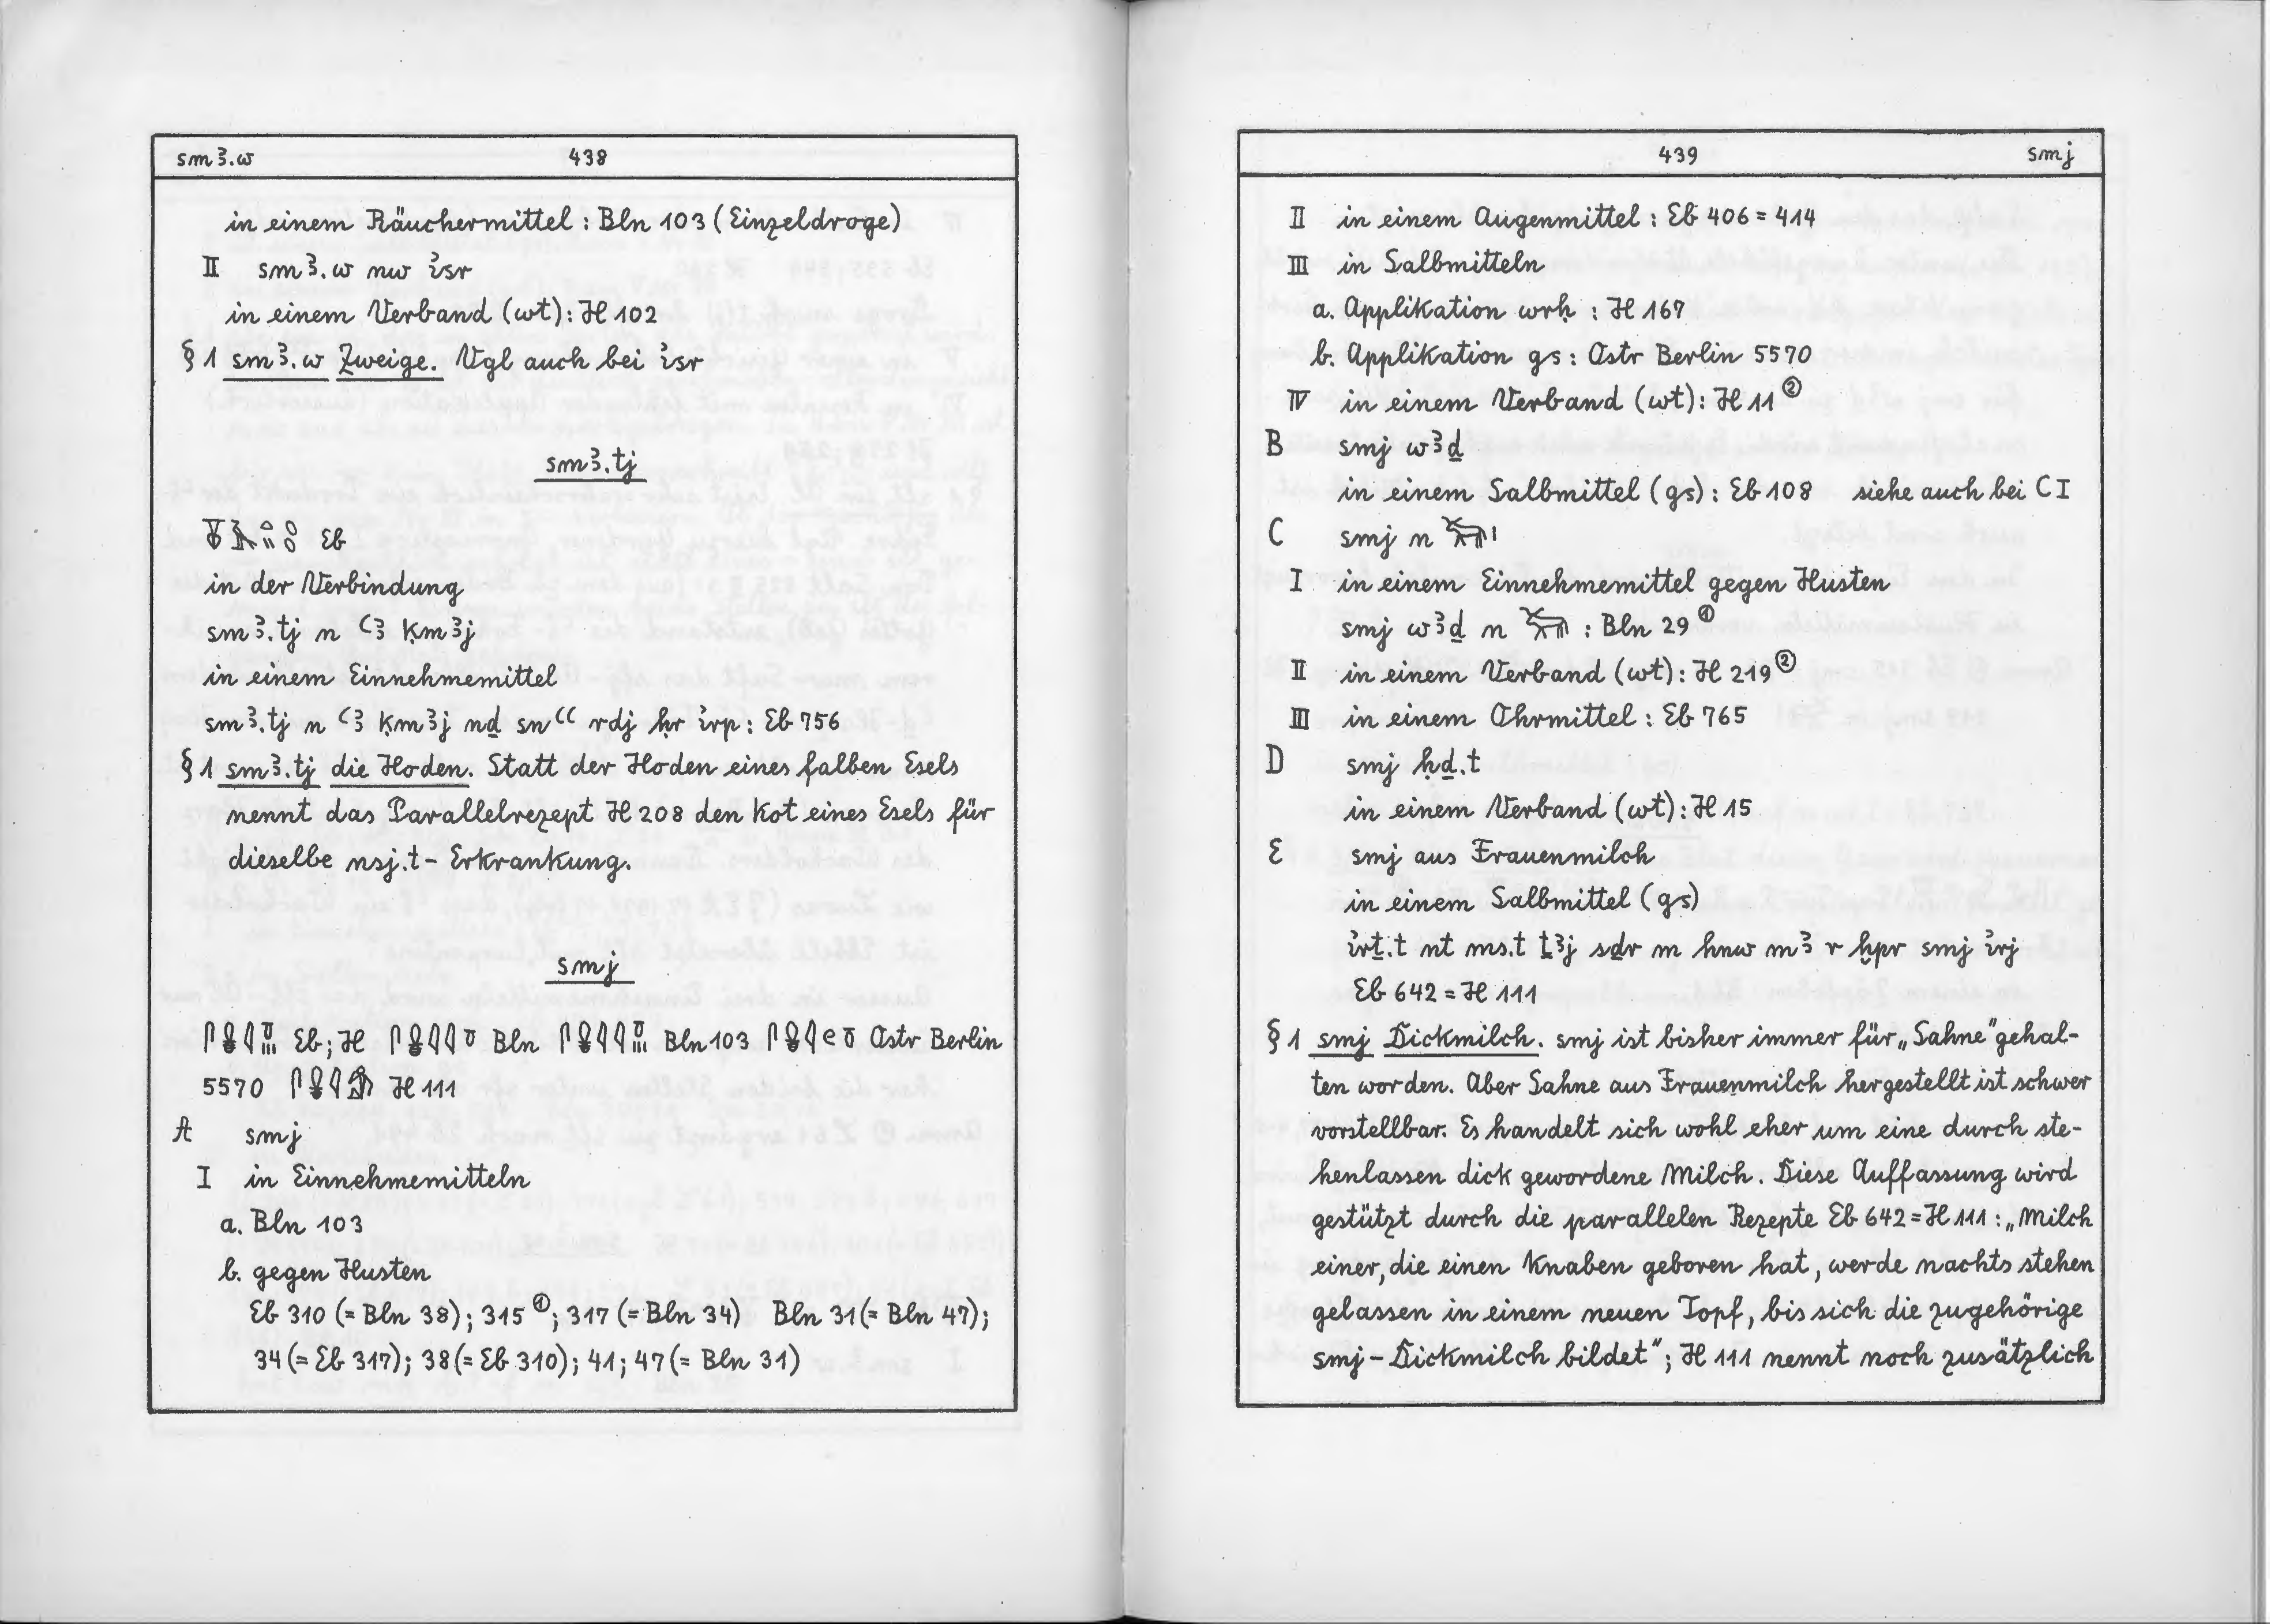 smꜣ.w 438
in einem Räuchermittel : Bln 103 (Einzeldroge)
II smꜣ.w nw ỉsr
in einem Verband (wt): H 102
§ 1 smꜣ.w Zweige. Vgl auch bei ỉsr
smꜣ.tj
Eb
in der Verbindung
smꜣ.tj n ꜥꜣ ḳmꜣj
in einem Einnehmemittel
smꜣ.tj n ꜥꜣ ḳmꜣj nḏ snꜥꜥ rdj ḥr ỉrp : Eb 756
§ 1 smꜣ.tj die Hoden. Statt der Hoden eines falben Esels
nennt das Parallelrezept H 208 den Kot eines Esels für
dieselbe nsj.t - Erkrankung.
smj
Eb ; H Bln Bln 103 Ostr Berlin
5570 H 111
A smj
I in Einnehmemitteln
a. Bln 103
b. gegen Husten
Eb 310 (= Bln 38) ; 315 ① ; 317 (= Bln 34) Bln 31 (= Bln 47) ;
34 (= Eb 317) ; 38 (= Eb 310) ; 41 ; 47 (= Bln 31)
439 smj
II in einem Augenmittel : Eb 406 = 414
III in Salbmitteln
a. Applikation wrḥ : H 167
b. Applikation gs : Ostr Berlin 5570
IV in einem Verband (wt) : H 11 ②
B smj wꜣḏ
in einem Salbmittel (gs) : Eb 108 siehe auch bei C I
C smj n 𓃒𓏤
I in einem Einnehmemittel gegen Husten
smj wꜣḏ n 𓃒 : Bln 29 ①
II in einem Verband (wt) : H 219 ②
III in einem Ohrmittel : Eb 765
D smj ḥḏ.t
in einem Verband (wt) : H 15
E smj aus Frauenmilch
in einem Salbmittel (gs)
ỉrṯ.t nt ms.t ṯꜣj sḏr m hnw mꜣ r ḫpr smj ỉrj
Eb 642 = H 111
§ 1 smj Dickmilch. smj ist bisher immer für „Sahne" gehal-
ten worden. Aber Sahne aus Frauenmilch hergestellt ist schwer
vorstellbar. Es handelt sich wohl eher um eine durch ste-
henlassen dick gewordene Milch. Diese Auffassung wird
gestützt durch die parallelen Rezepte Eb 642 = H 111 : „Milch
einer, die einen Knaben geboren hat, werde nachts stehen
gelassen in einem neuen Topf, bis sich die zugehörige
smj - Dickmilch bildet" ; H 111 nennt noch zusätzlich